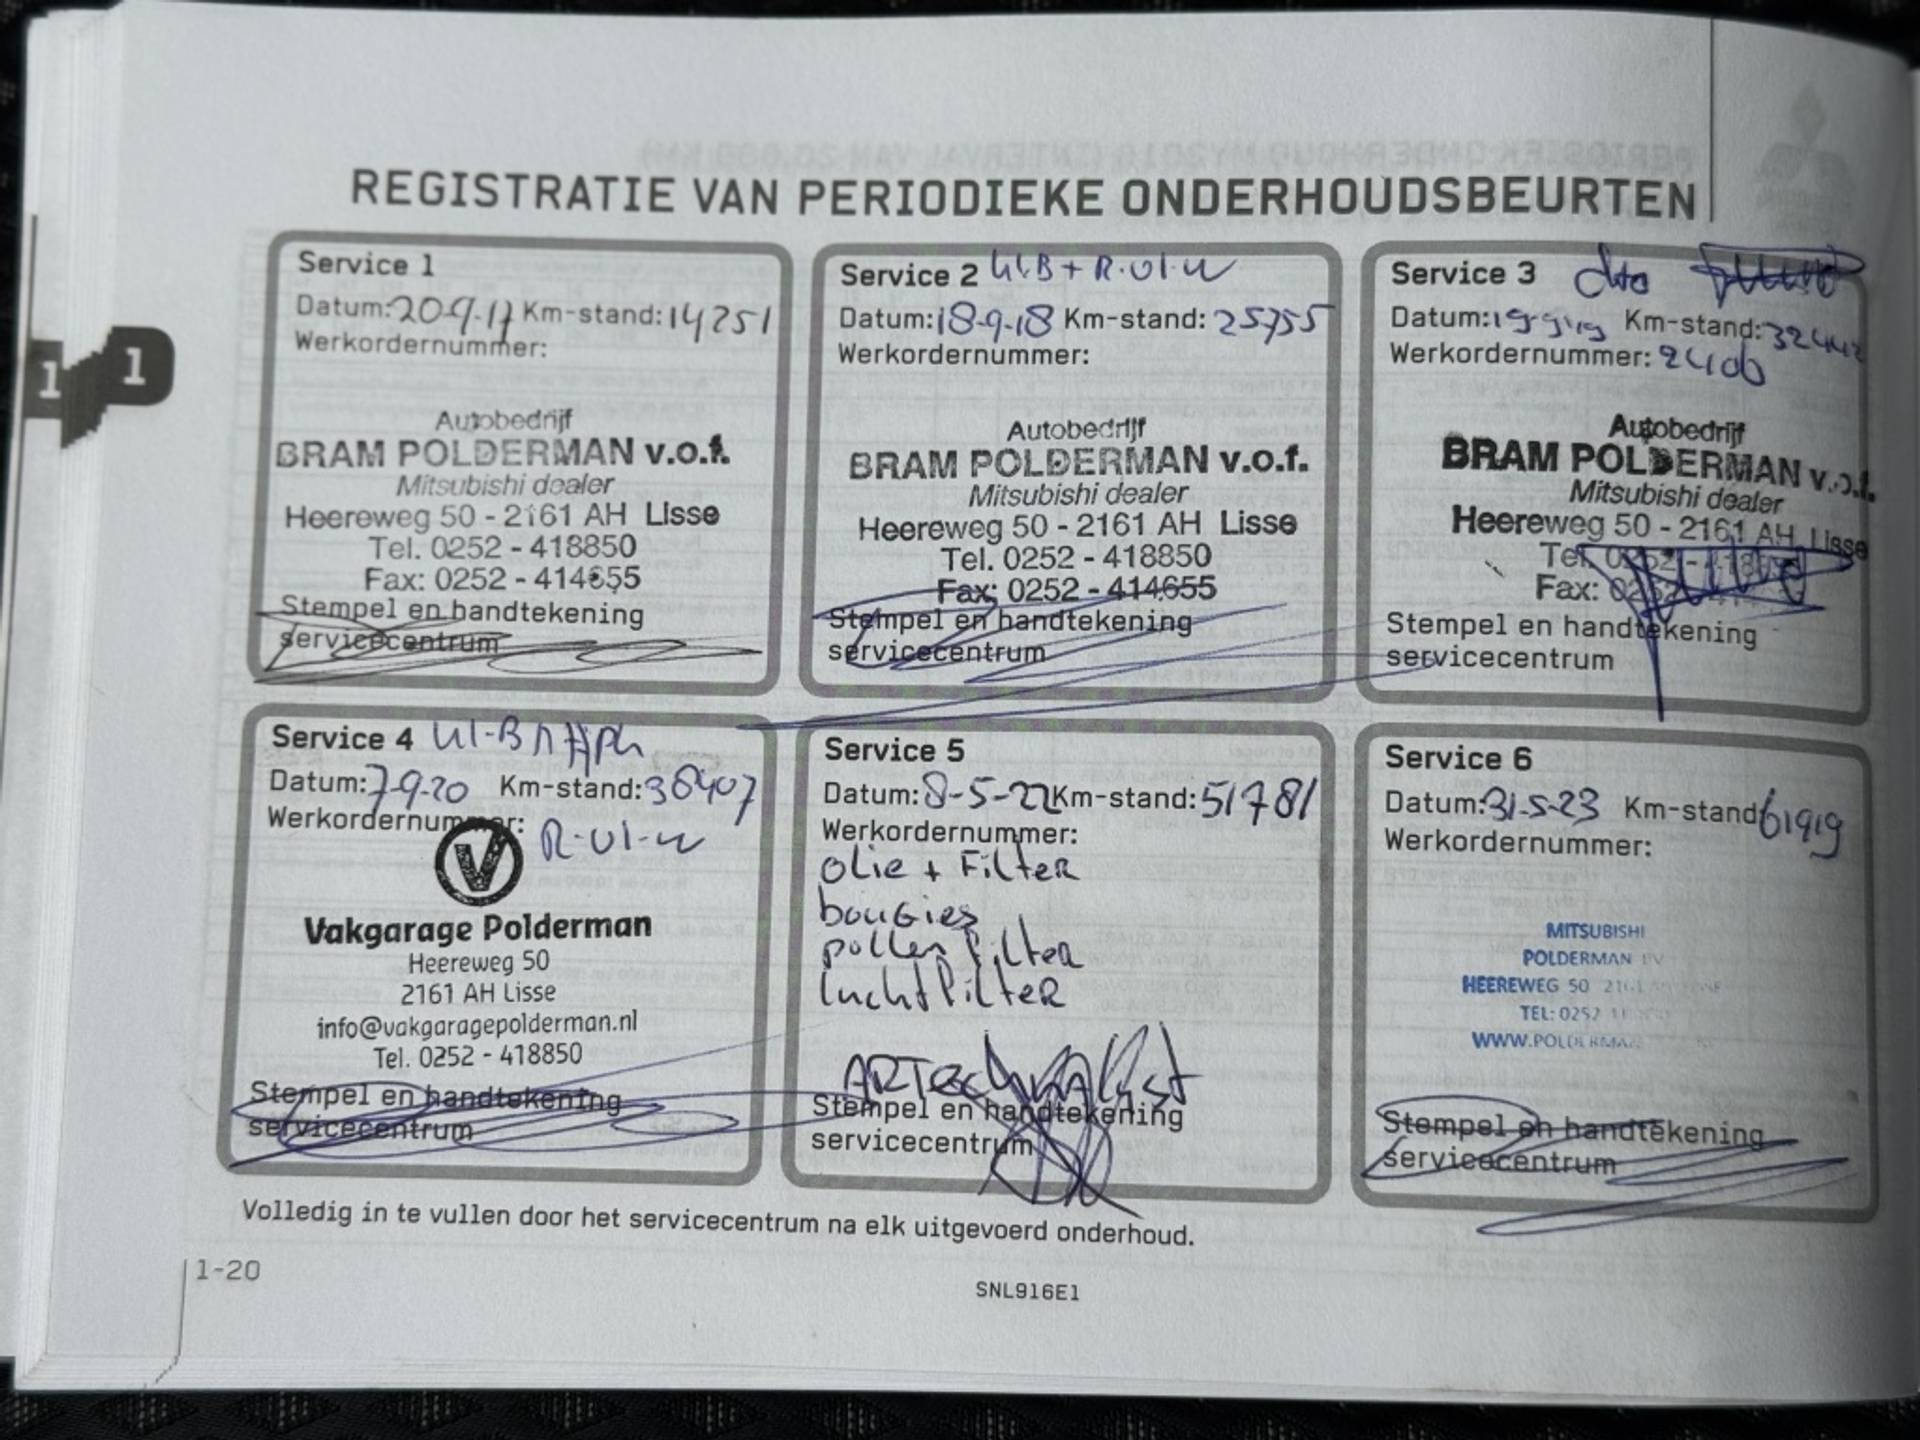 REGISTRATIE VAN PERIODIEKE ONDERHOUDSBEURTEN
1
1
Service 1
Datum: 20-9-17 Km-stand: 14251
Werkordernummer:
Autobedrijf
BRAM POLDERMAN v.o.f.
Mitsubishi dealer
Heereweg 50 - 2161 AH Lisse
Tel. 0252 - 418850
Fax: 0252 - 414655
Stempel en handtekening
servicecentrum
Service 2
Datum: 18-9-18 Km-stand: 25755
Werkordernummer:
Autobedrijf
BRAM POLDERMAN v.o.f.
Mitsubishi dealer
Heereweg 50 - 2161 AH Lisse
Tel. 0252 - 418850
Fax: 0252 - 414655
Stempel en handtekening
servicecentrum
Service 3
Datum: 19-9-19 Km-stand: 32442
Werkordernummer:
Autobedrijf
BRAM POLDERMAN v.o.f.
Mitsubishi dealer
Heereweg 50 - 2161 AH Lisse
Tel.
Fax:
Stempel en handtekening
servicecentrum
Service 4
Datum: 7-9-20 Km-stand: 38407
Werkordernummer:
V
Vakgarage Polderman
Heereweg 50
2161 AH Lisse
info@vakgaragepolderman.nl
Tel. 0252 - 418850
Stempel en handtekening
servicecentrum
Service 5
Datum: 8-5-22 Km-stand: 51781
Werkordernummer:
olie + Filter
bougies
pollen filter
luchtfilter
Stempel en handtekening
servicecentrum
Service 6
Datum: 31-5-23 Km-stand 61919
Werkordernummer:
MITSUBISHI
POLDERMAN
HEEREWEG 50
TEL: 0252
Stempel en handtekening
servicecentrum
Volledig in te vullen door het servicecentrum na elk uitgevoerd onderhoud.
1-20
SNL916E1